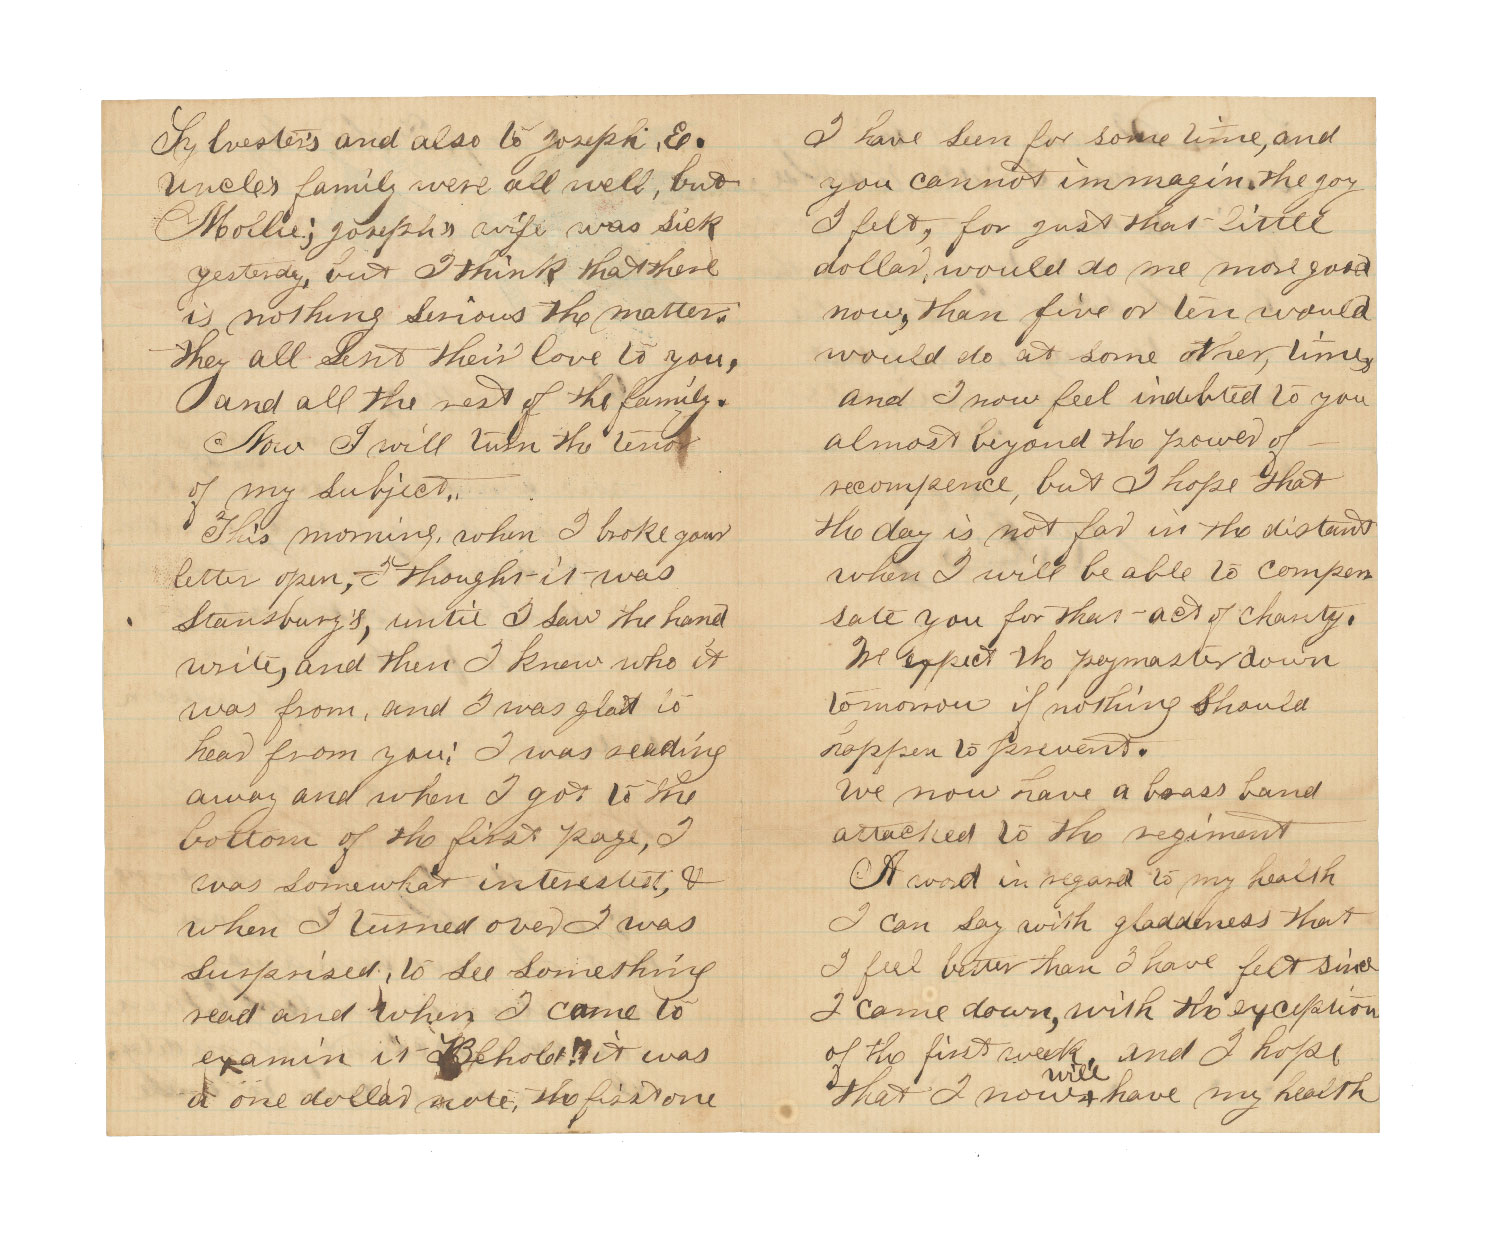 Sylvester's and also to Joseph, E.
Uncles family were all well, but
Mollie; Joseph's wife was sick
yesterdy, but I think that there
is nothing serious the matter.
they all sent their love to you,
and all the rest of the family.
Now I will turn the tenor
of my subject.
This morning, when I broke your
letter open, I thought it was
Stansbury's, until I saw the hand
write, and then I knew who it
was from, and I was glad to
hear from you; I was reading
away and when I got to the
bottom of the first page, I
was somewhat interested, &
when I turned over I was
surprised, to see something
read and when I came to
examin it Behold!! it was
a one dollar note, the first one
I have seen for some time, and
you cannot immagin the joy
I felt, for just that little
dollar, would do me more good
now, than five or ten would
would do at some other, time,
and I now feel indebted to you
almost beyond the power of
recompence, but I hope that
the day is not far in the distant
when I will be able to compen
sate you for that act of charity.
We expect the paymaster down
tomorrow if nothing should
happen to prevent.
We now have a brass band
attacked to the regiment
A word in regard to my health
I can say with gladdeness that
I feel better than I have felt since
I came down, with the exception
of the first week, and I hope
will
that I now have my health